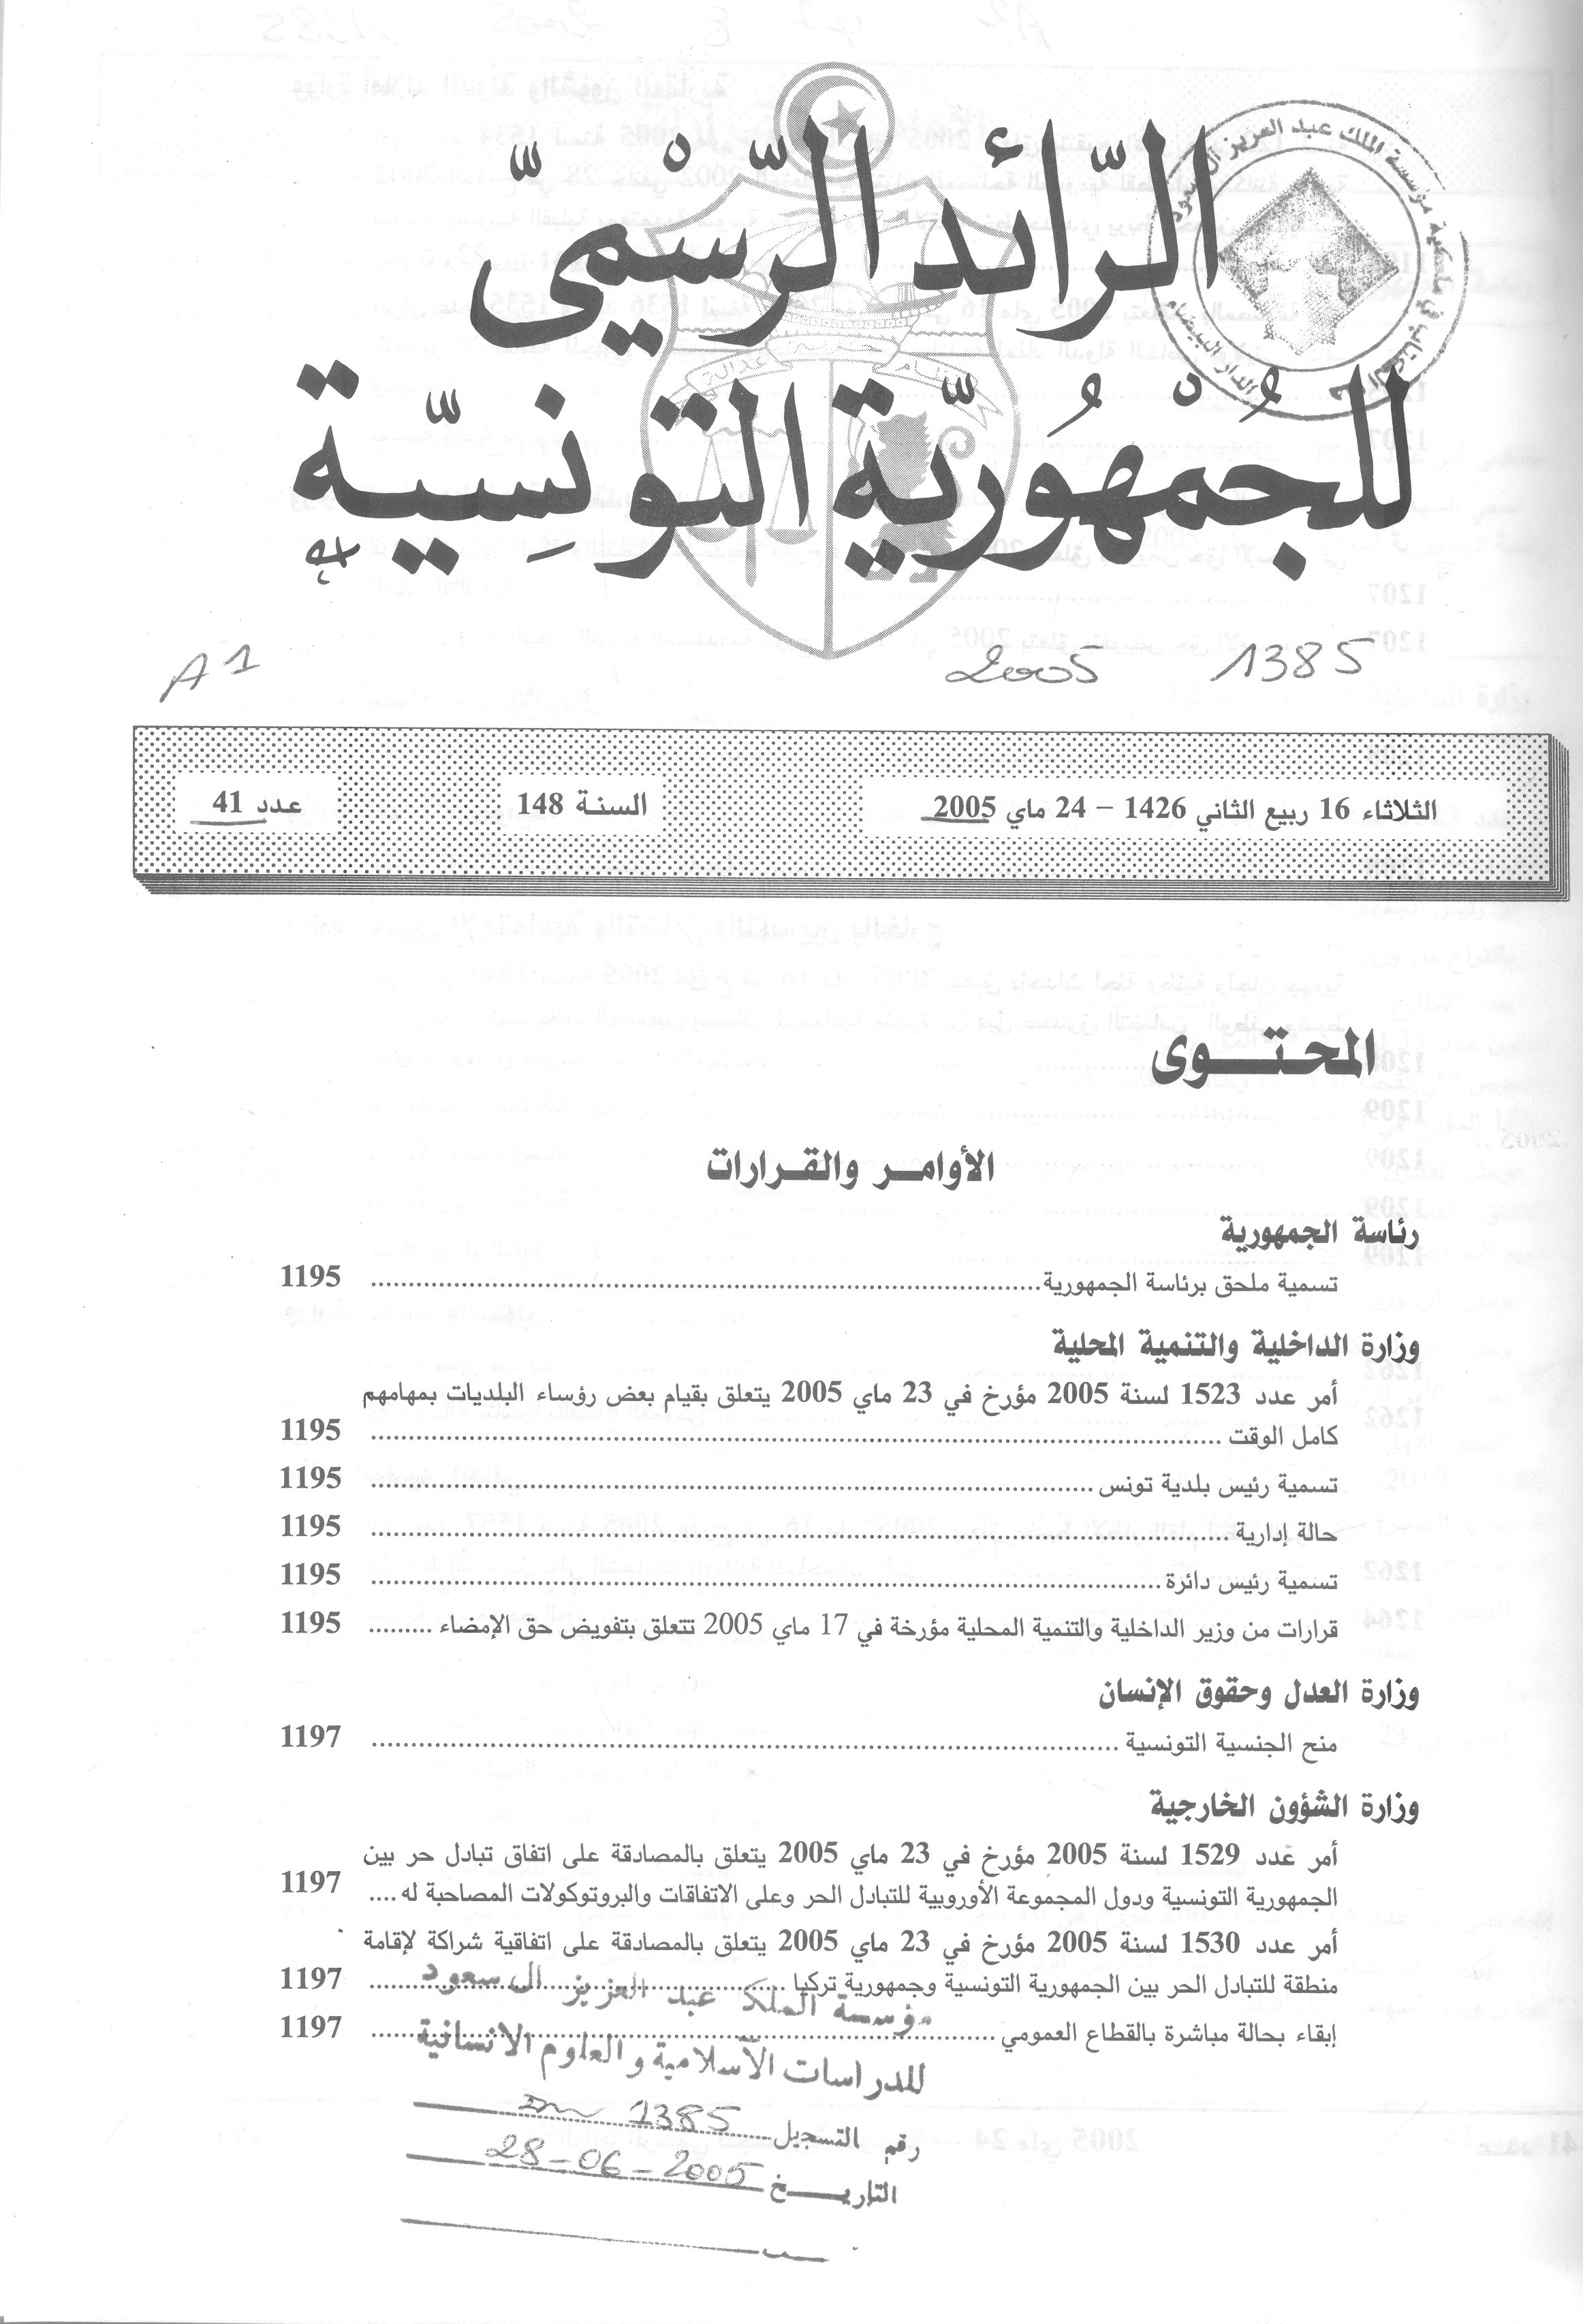 الرّائد الرّسْميّ
للجُمْهُوريّة التّونِسيّة
A1 2005 1385
الثلاثاء 16 ربيع الثاني 1426 – 24 ماي 2005
السنة 148
عدد 41
المحتوى
الأوامر والقرارات
رئاسة الجمهورية
تسمية ملحق برئاسة الجمهورية ........ 1195
وزارة الداخلية والتنمية المحلية
أمر عدد 1523 لسنة 2005 مؤرخ في 23 ماي 2005 يتعلق بقيام بعض رؤساء البلديات بمهامهم
كامل الوقت ........ 1195
تسمية رئيس بلدية تونس ........ 1195
حالة إدارية ........ 1195
تسمية رئيس دائرة ........ 1195
قرارات من وزير الداخلية والتنمية المحلية مؤرخة في 17 ماي 2005 تتعلق بتفويض حق الإمضاء ........ 1195
وزارة العدل وحقوق الإنسان
منح الجنسية التونسية ........ 1197
وزارة الشؤون الخارجية
أمر عدد 1529 لسنة 2005 مؤرخ في 23 ماي 2005 يتعلق بالمصادقة على اتفاق تبادل حر بين
الجمهورية التونسية ودول المجموعة الأوروبية للتبادل الحر وعلى الاتفاقات والبروتوكولات المصاحبة له .... 1197
أمر عدد 1530 لسنة 2005 مؤرخ في 23 ماي 2005 يتعلق بالمصادقة على اتفاقية شراكة لإقامة
منطقة للتبادل الحر بين الجمهورية التونسية وجمهورية تركيا ........ 1197
إبقاء بحالة مباشرة بالقطاع العمومي ........ 1197
مؤسسة الملك عبد العزيز ال سعود
للدراسات الاسلامية والعلوم الانسانية
رقم التسجيل 1385
التاريخ 28-06-2005